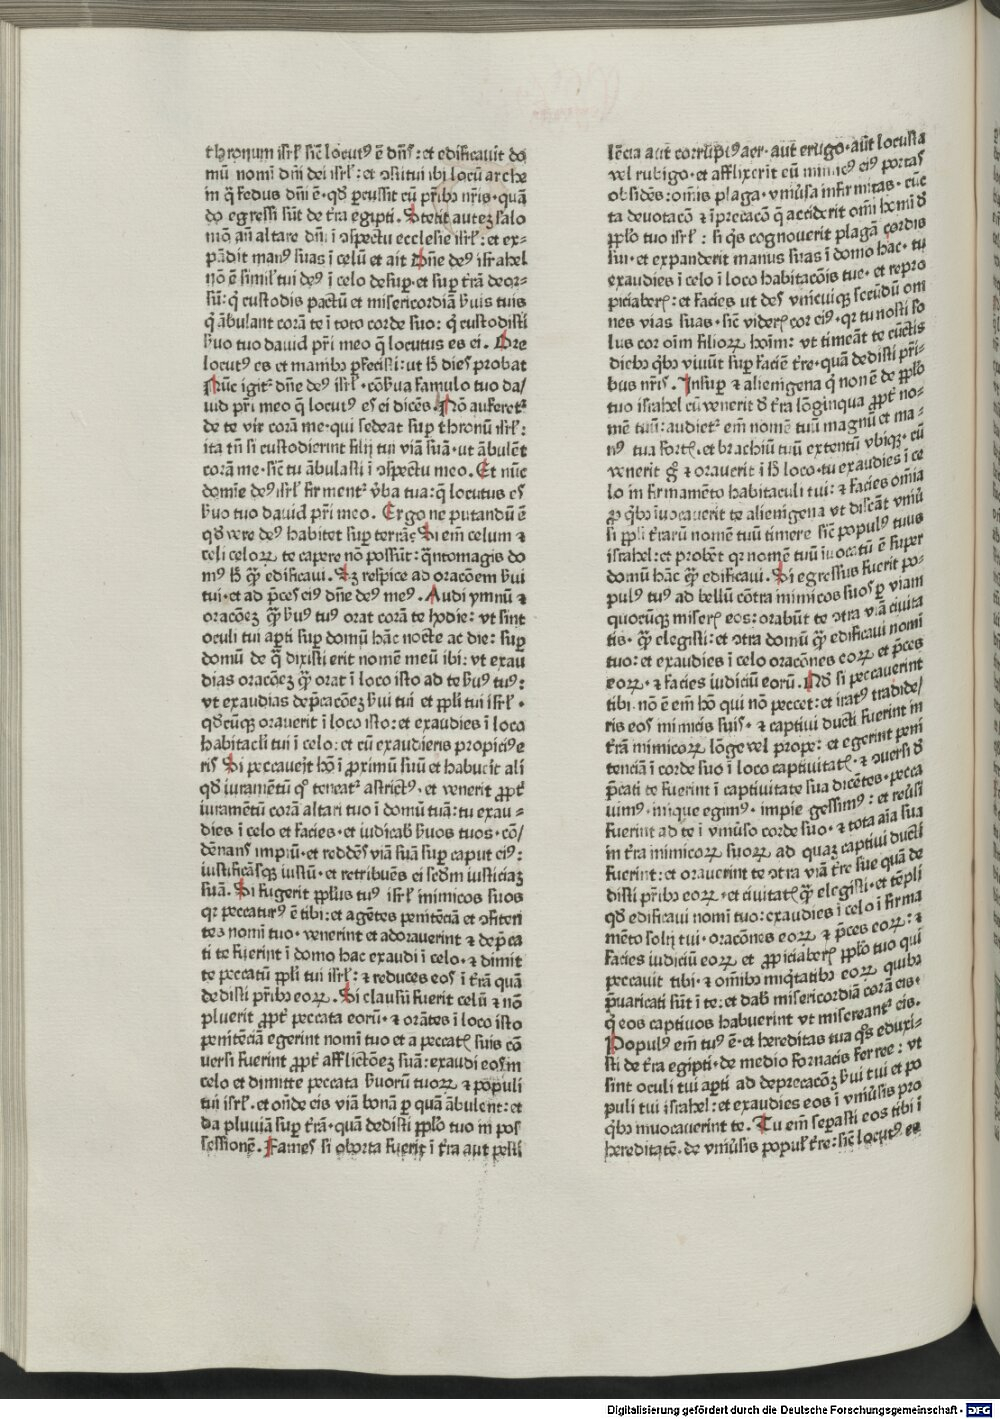 thronum isrl̄ sic̄ locutꝰ ē dn̄s: et edificauit do
mū nomī dn̄i dei isrl̄: et ↄstitui ibi locū arche
in q̄ fedus dn̄i ē· qd̓ ꝑcussit cū pr̄ibꝫ nr̄is· quā
do egressi sūt de tr̄a egipti. Stetit autez salo
mō an̄ altare dn̄i ī ↄspectu ecclesie isrl̄: et ex⸗
pādit manꝰ suas ī celū et ait Dn̄e deꝰ israhel
nō ē similꝭ tui deꝰ ī celo desuꝑ· et suꝑ tr̄ā deor⸗
sū: q̄ custodis pactū et misericordiā ẜuis tuis
q̄ ābulant corā te ī toto corde suo: q̄ custodisti
ẜuo tuo dauid pr̄i meo q̄ locutus es ei. Ore
locutꝰ es et manibꝫ ꝑfecisti: ut h̄ dieſ probat
Nūc igit᷑ dn̄e deꝰ isrl̄· cōẜua famulo tuo da/
uid pr̄i meo q̄ locutꝰ eſ ei dicēs. Nō auferet᷑
de te vir corā me· qui sedeat suꝑ thronū isrl̄:
ita tn̄ si custodierint filij tui viā suā· ut ābulēt
corā me· sic̄ tu ābulasti ī ↄspectu meo. Et nūc
domīe deꝰ isrl̄ firment᷑ v̄ba tua: q̄ locutus eſ
ẜuo tuo dauid pr̄i meo. Ergo ne putandū ē
qd̓ vere deꝰ habitet suꝑ terrā Si em̄ celum ⁊
celi celoꝝ te capere nō possūt: q̄ntomagis do
mꝰ h̄ quā edificaui. Sꝫ respice ad orac̄oem ẜui
tui· et ad p̄ces eiꝰ dn̄e deꝰ meꝰ. Audi ymnū ⁊
orac̄oēz quā ẜuꝰ tuꝰ orat corā te hodie: vt sint
oculi tui aꝑti suꝑ domū hāc nocte ac die: suꝑ
domū de q̄ dixisti erit nomē meū ibi: vt exau
dias orac̄oēz quā orat ī loco isto ad te ẜuꝰ tuꝰ:
vt exaudias dep̄cac̄oēz ẜui tui et ppl̄i tui isrl̄·
qd̓cūqꝫ orauerit ī loco isto: et exaudies ī loco
habitacl̄i tui ī celo: et cū exaudieris propiciꝰ e
ris Si peccauerit hō ī ꝓximū suū et habuerit ali
qd̓ iuramētū qͦ teneat᷑ astrictꝰ· et venerit ꝓpt̄
iuramētū corā altari tuo ī domū tuā: tu exau⸗
dies ī celo et facies· et iudicabꝭ ẜuos tuos· cō/
dēnanſ impiū· et reddēſ viā suā suꝑ caput eiꝰ:
iustificāsqꝫ iustū· et retribuēs ei scd̄m iusticiaz
suā. Si fugerit ppl̄us tuꝰ isrl̄ inimicos suos
qꝛ peccaturꝰ ē tibi: et agētes penitēciā et ↄfiten
tes nomī tuo· venerint et adorauerint ⁊ dep̄ca
ti te fuerint ī domo hac exaudi ī celo· ⁊ dimit
te peccatū ppl̄i tui isrl̄: ⁊ reduces eoſ ī tr̄ā quā
dedisti pr̄ibꝫ eoꝝ. Si clausū fuerit celū ⁊ nō
pluerit ꝓpt̄ peccata eorū· ⁊ orātes ī loco isto
penitēciā egerint nomī tuo et a peccatꝭ suis cō
uersi fuerint ꝓpt̄ afflictōeꝫ suā: exaudi eos in
celo et dimitte peccata ẜuorū tuoꝝ ⁊ populi
tui isrl̄· et on̄de eis viā bonā ꝑ quā ābulent: et
da pluuiā suꝑ tr̄ā· quā dedisti ppl̄o tuo in pos
sessionē. Fames si oborta fuerit ī tr̄a aut pesti
lēcia aut corruptꝰ aer· aut erugo· aut locusta
vel rubigo· et afflixerit eū inimicꝰ eiꝰ portas
obsidēs: om̄is plaga· vniūsa infirmitas· cūc
ta deuotac̄o ⁊ īprecac̄o q̄ acciderit om̄i hom̄i d̓
ppl̄o tuo isrl̄: si q̄s cognouerit plagā cordis
sui· et expanderit manus suas ī domo hac· tu
exaudies ī celo ī loco habitac̄ois tue· et repro
piciaberꝭ: et facies ut des vnicuiqꝫ scd̄ū om
nes vias suas· sic̄ viderꝭ cor eiꝰ· qꝛ tu nosti so
lus cor om̄ filioꝝ hoīm: vt timeāt te cūctis
diebꝫ q̄bꝫ viuūt suꝑ faciē tr̄e· quā dedisti pr̄i⸗
bus nr̄is. Insuꝑ ⁊ alienigena q̄ non ē de ppl̄o
tuo israhel cū venerit d̓ tr̄a lōginqua ꝓpt̄ no⸗
mē tuū: audiet᷑ em̄ nomē tuū magnū et ma⸗
nꝰ tua fortꝭ· et brachiū tuū extentū vbiqꝫ· cū
venerit g̊ ⁊ orauerit ī h̄ loco· tu exaudies ī ce
lo in firmamēto habitaculi tui: ⁊ facies om̄ia
ꝓ q̄bꝫ īuocauerit te alienigena vt discāt vniū
si ppl̄i tr̄arū nomē tuū timere sic̄ populꝰ tuus
israhel: et probēt qꝛ nomē tuū īuocatū ē super
domū hāc quā edificaui. Si egressus fuerit po⸗
pulꝰ tuꝰ ad bellū cōtra inimicos suoſ ꝑ viam
quocūqꝫ miserꝭ eos: orabūt te ↄtra viā ciuita
tis· quā elegisti: et ↄtra domū quā edificaui nomī
tuo: et exaudies ī celo orac̄ones eoꝝ et p̄ces
eoꝝ· ⁊ facies iudiciū eorū. Qd̓ si peccauerint
tibi· nō ē em̄ hō qui nō peccet: et iratꝰ tradide/
ris eoſ inimicis suis· ⁊ captiui ducti fuerint in
tr̄ā inimicoꝝ lōge vel prope: et egerint peni
tenciā ī corde suo ī loco captiuitatꝭ· ⁊ ↄuersi d̓
p̄cati te fuerint ī captiuitate sua dicētes· pecca
uimꝰ· inique egimꝰ· impie gessimꝰ: et reūsi
fuerint ad te ī vniūso corde suo· ⁊ tota aīa sua
in tr̄a inimicoꝝ suoꝝ ad quaꝫ captiui ducti
fuerint: et orauerint te ↄtra viā tr̄e sue quā de
disti pr̄ibꝫ eoꝝ· et ciuitatꝭ quā elegisti· et tēpli
qd̓ edificaui nomī tuo: exaudies ī celo ī firma
mēto solij tui· orac̄ones eoꝝ ⁊ p̄ces eoꝝ: ⁊
facies iudiciū eoꝝ et ꝓpiciaberꝭ ppl̄o tuo qui
peccauit tibi· ⁊ om̄ibꝫ iniq̄tatibꝫ eoꝝ quibꝫ
p̄uaricati sūt ī te: et dabꝭ misericordiā corā eis·
q̄ eos captiuos habuerint vt misereant᷑ eis.
Populꝰ em̄ tuꝰ ē· et hereditas tua qͦs eduxi⸗
sti de tr̄a egipti· de medio fornacis ferree: vt
sint oculi tui aꝑti ad deprecac̄oꝫ ẜui tui et po
puli tui israhel: et exaudies eos ī vniūsis pro
q̄bꝫ inuocauerint te. Tu em̄ separasti eos tibi ī
hereditatē· de vniūsis popul̄ tr̄e: sic̄ locutꝰ es
Digitalisierung gefördert durch die Deutsche Forschungsgemeinschaft - DFG